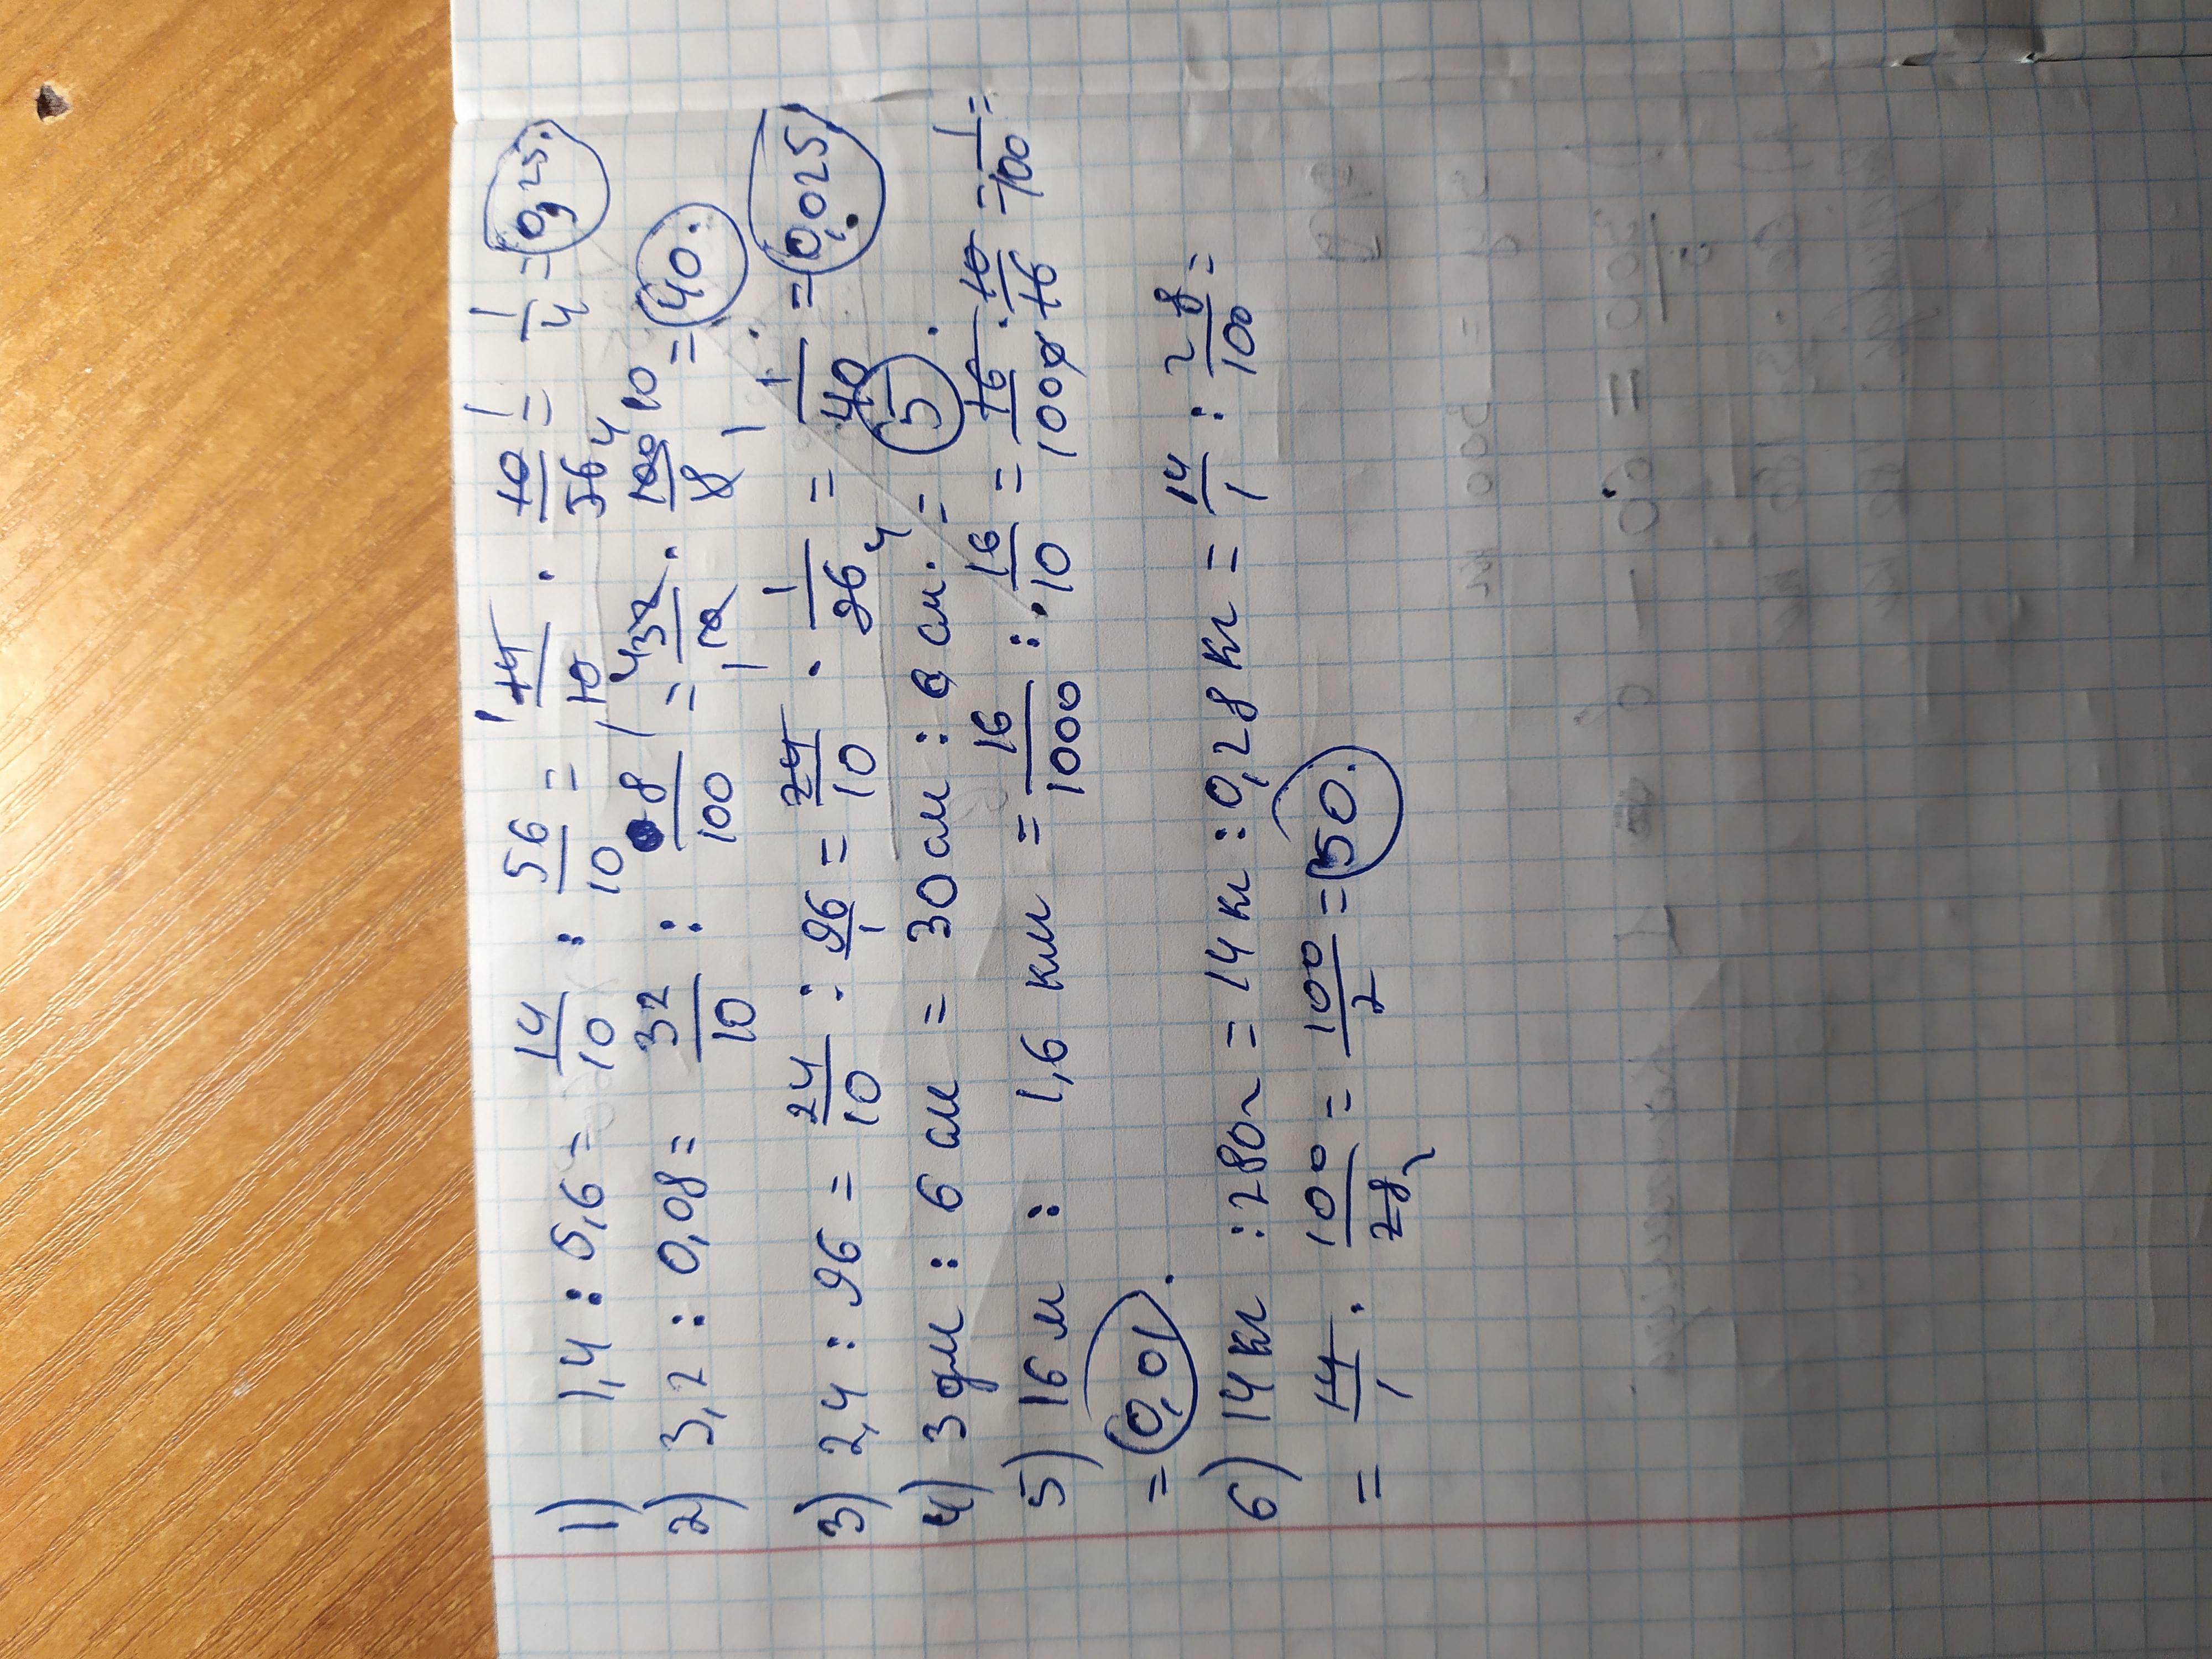 1) 1,4 : 5,6 = 14/10 : 56/10 = 14/10 · 10/56 = 1/4 = 0,25.
2) 3,2 : 0,08 = 32/10 : 8/100 = 32/10 · 100/8 = 40.
3) 2,4 : 96 = 24/10 : 96/1 = 24/10 · 1/96 = 1/40 = 0,025
4) 3 дм : 6 см = 30 см : 6 см = 5.
5) 16 м : 1,6 км = 16/1000 : 16/10 = 16/1000 · 10/16 = 1/100 =
= 0,01.
6) 14 кг : 280 г = 14 кг : 0,28 кг = 14/1 : 28/100 =
= 14/1 · 100/28 = 100/2 = 50.